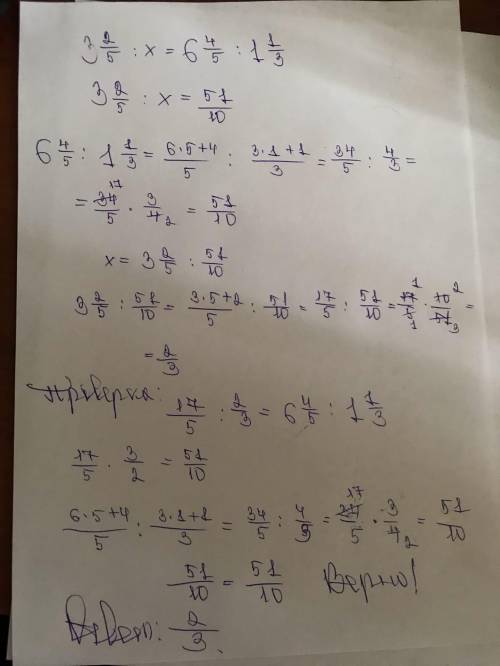 3 2/5 : x = 6 4/5 : 1 1/3
3 2/5 : x = 51/10
6 4/5 : 1 1/3 = (6·5+4)/5 : (3·1+1)/3 = 34/5 : 4/3 =
= 34 17/5 · 3/4 2 = 51/10
x = 3 2/5 : 51/10
3 2/5 : 51/10 = (3·5+2)/5 : 51/10 = 17/5 : 51/10 = 17 1/5 1 · 10 2/51 3 =
= 2/3
Проверка:
17/5 : 2/3 = 6 4/5 : 1 1/3
17/5 · 3/2 = 51/10
(6·5+4)/5 : (3·1+1)/3 = 34/5 : 4/3 = 34 17/5 · 3/4 2 = 51/10
51/10 = 51/10 Верно!
Ответ: 2/3.